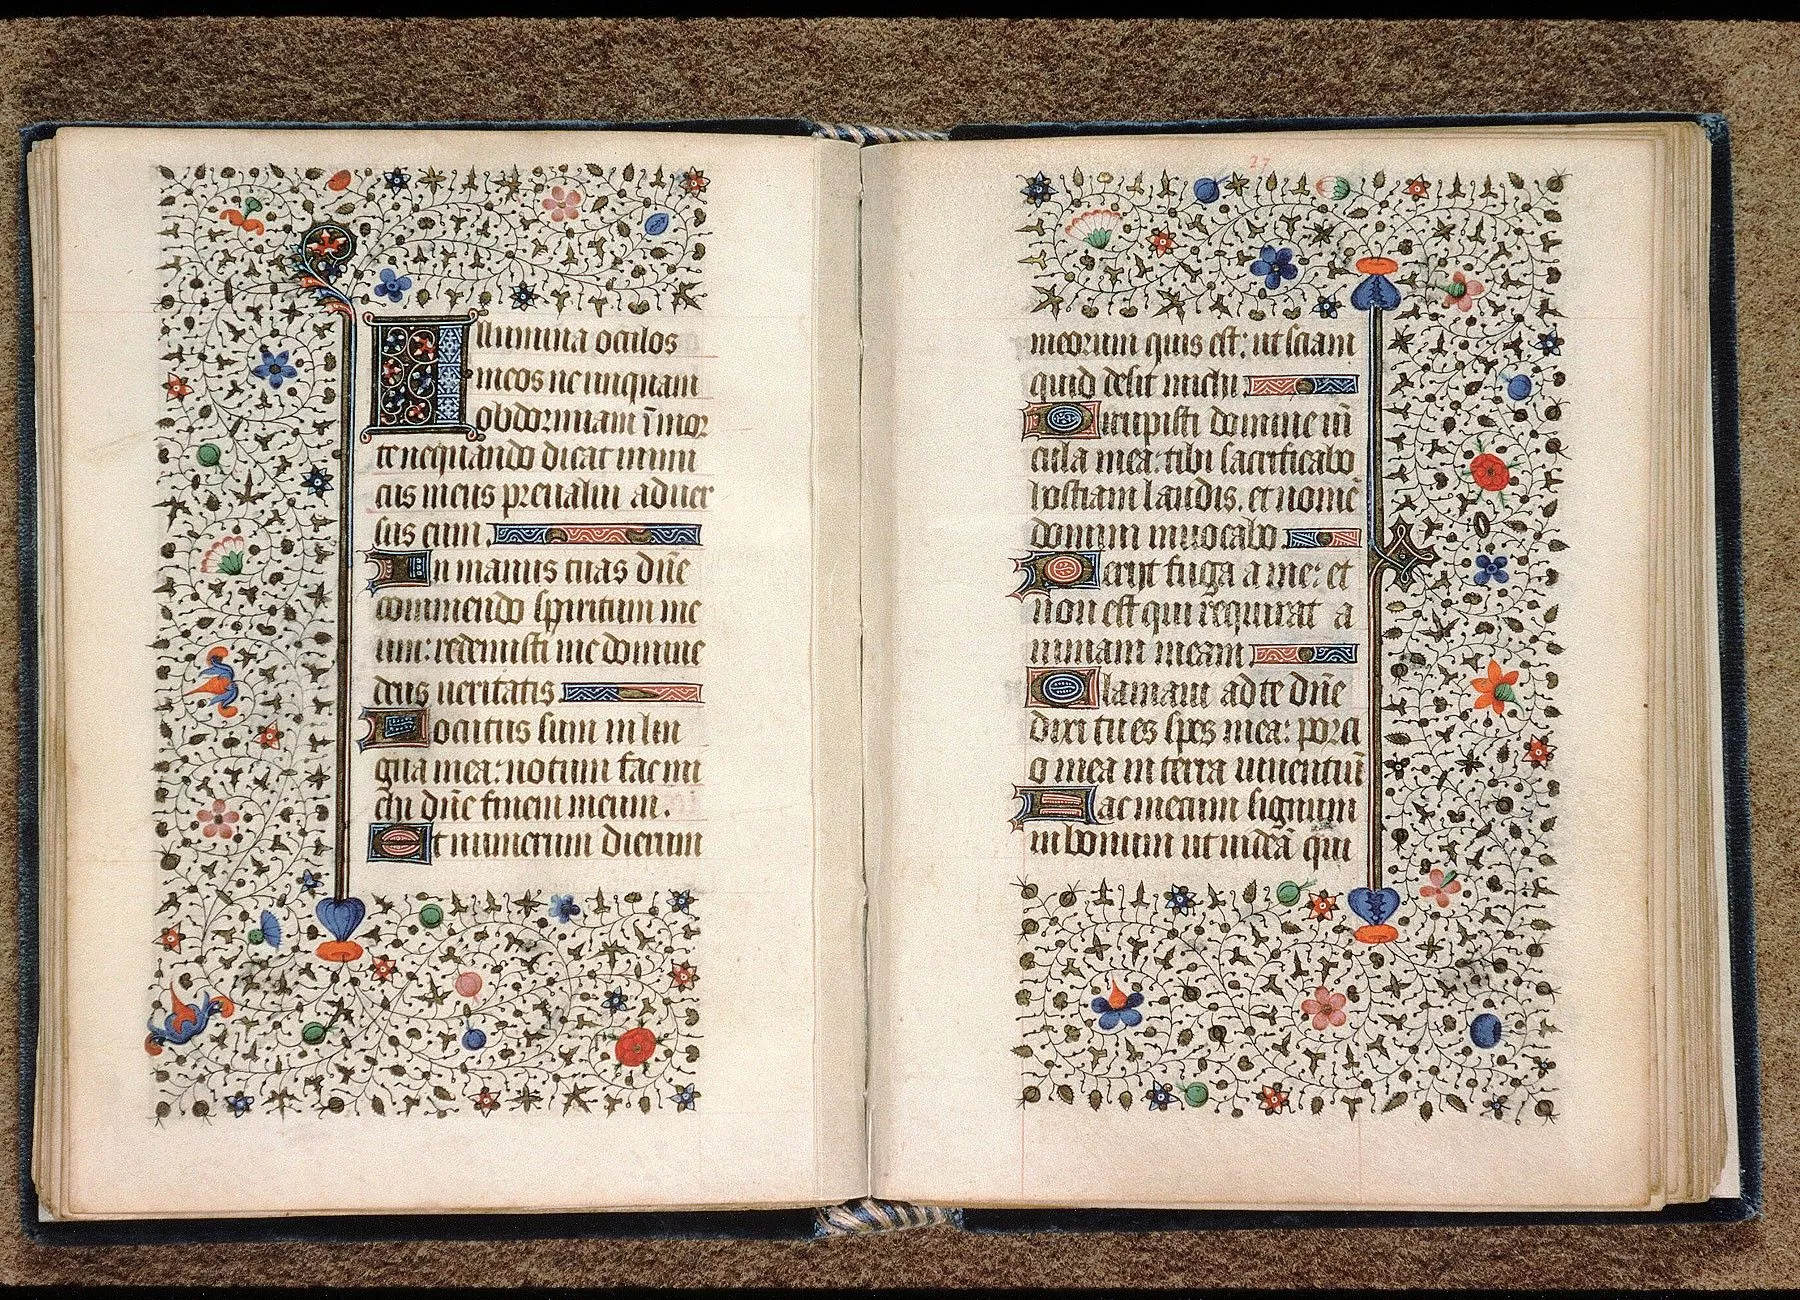 Illumina oculos
meos ne unquam
obdormiam ī mor
te nequando dicat inimi
cus meus preualui aduer
sus eum.
In manus tuas dn̄e
commendo spiritum me
um: redemisti me domine
deus ueritatis
Locutus sum in lin
gua mea: notum fac mi
chi dn̄e finem meum.
Et numerum dierum
27
meorum quis est: ut sciam
quid desit michi
Dirupisti domine uī
cula mea: tibi sacrificabo
hostiam laudis. et nomē
domini inuocabo
Periit fuga a me: et
non est qui requirat a
nimam meam
Clamaui ad te dn̄e
dixi tu es spes mea: porci
o mea in terra uiuentiū
Fac mecum signum
in bonum ut uideāt qui